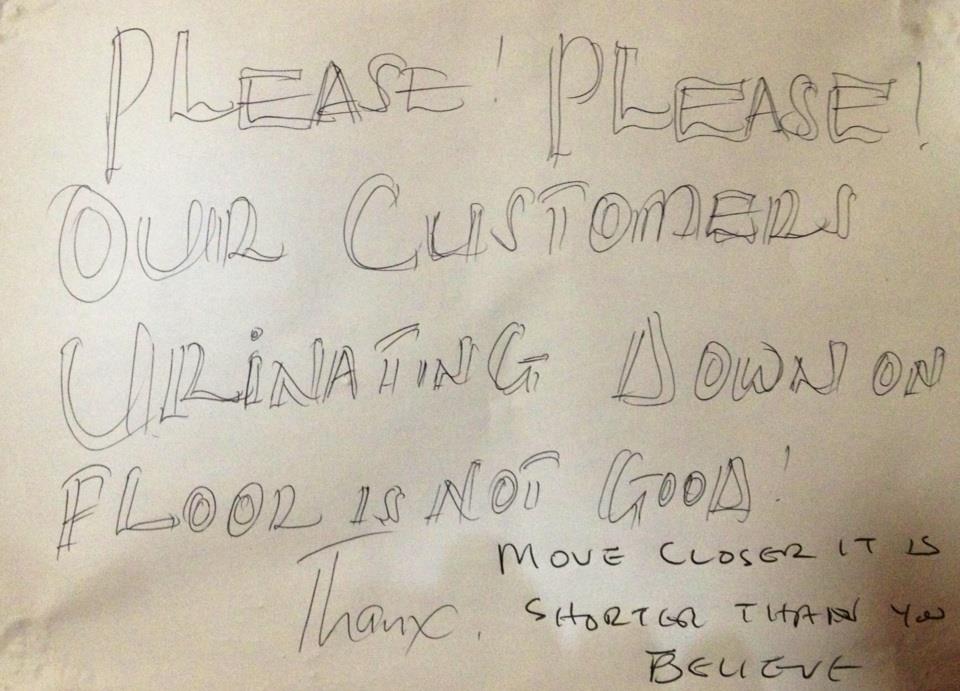 PLEASE! PLEASE!
OUR CUSTOMERS
URiNATING DOWN ON
FLOOR IS NOT GOOD!
Thanx.
MOVE CLOSER IT IS
SHORTER THAN YOU
BELIEVE